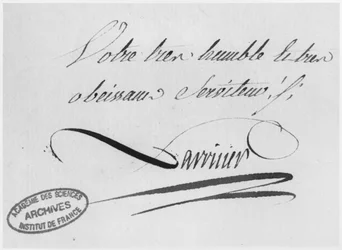 Votre tres humble Et tres
obeissant Serviteur
ACADÉMIE DES SCIENCES
ARCHIVES
INSTITUT DE FRANCE